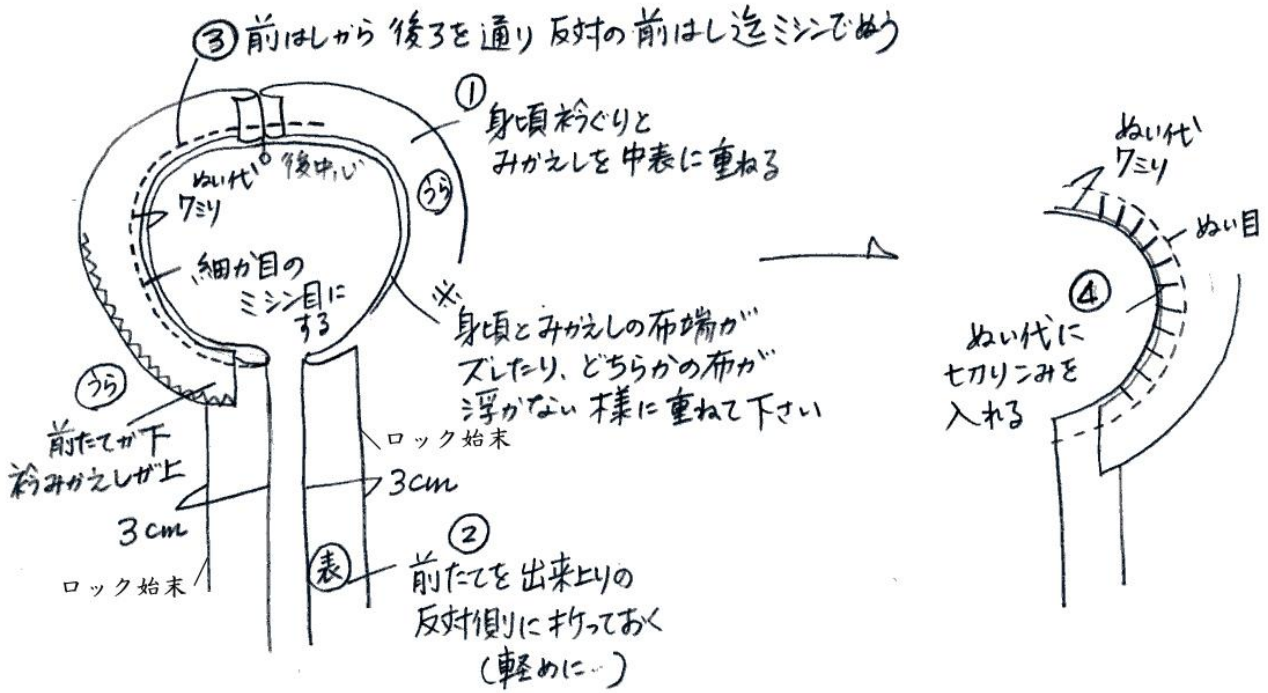 ③ 前はしから 後ろを通り 反対の前はし迄ミシンでぬう
①
身頃衿ぐりと
みかえしを中表に重ねる
うら
後中心
ぬい代
7ミリ
細か目の
ミシン目に
する
※
身頃とみかえしの布端が
ズレたり、どちらかの布が
浮かない様に重ねて下さい
うら
前たてが下
衿みかえしが上
3cm
ロック始末
ロック始末
3cm
表
②
前たてを出来上りの
反対側に折っておく
(軽めに…)
ぬい代
7ミリ
ぬい目
④
ぬい代に
切りこみを
入れる